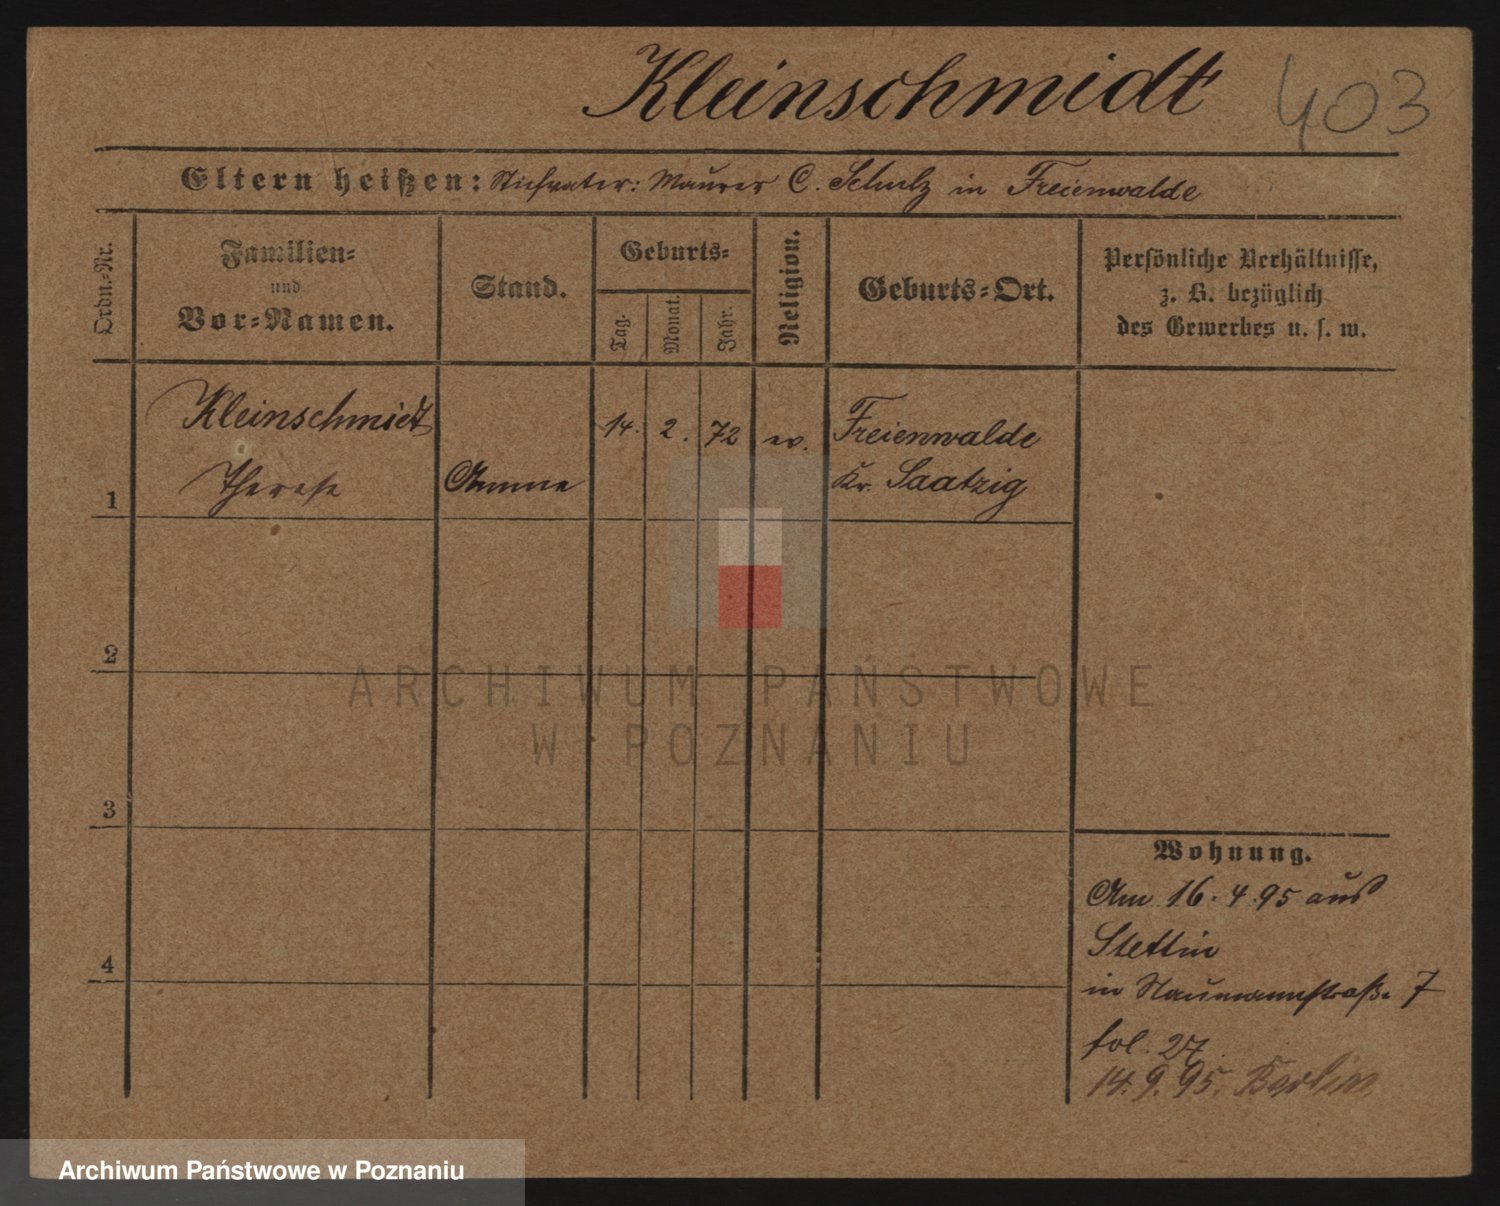 Kleinschmidt 403
Eltern heißen: Stiefvater: Maurer C. Schulz in Freienwalde
Ordn.-Nr.
Familien-
und
Vor-Namen.
Stand.
Geburts-
Tag.
Monat.
Jahr.
Religion.
Geburts-Ort.
Persönliche Verhältnisse,
z. B. bezüglich
des Gewerbes u. s. w.
Kleinschmidt 14. 2. 72 ev. Freienwalde
1 Therese Amme Kr. Saatzig
2
3
4
Wohnung.
Am 16.4.95 aus
Stettin
in Naumannstraße 7
fol. 27.
14.9.95. Berlin
ARCHIWUM PAŃSTWOWE
W POZNANIU
Archiwum Państwowe w Poznaniu